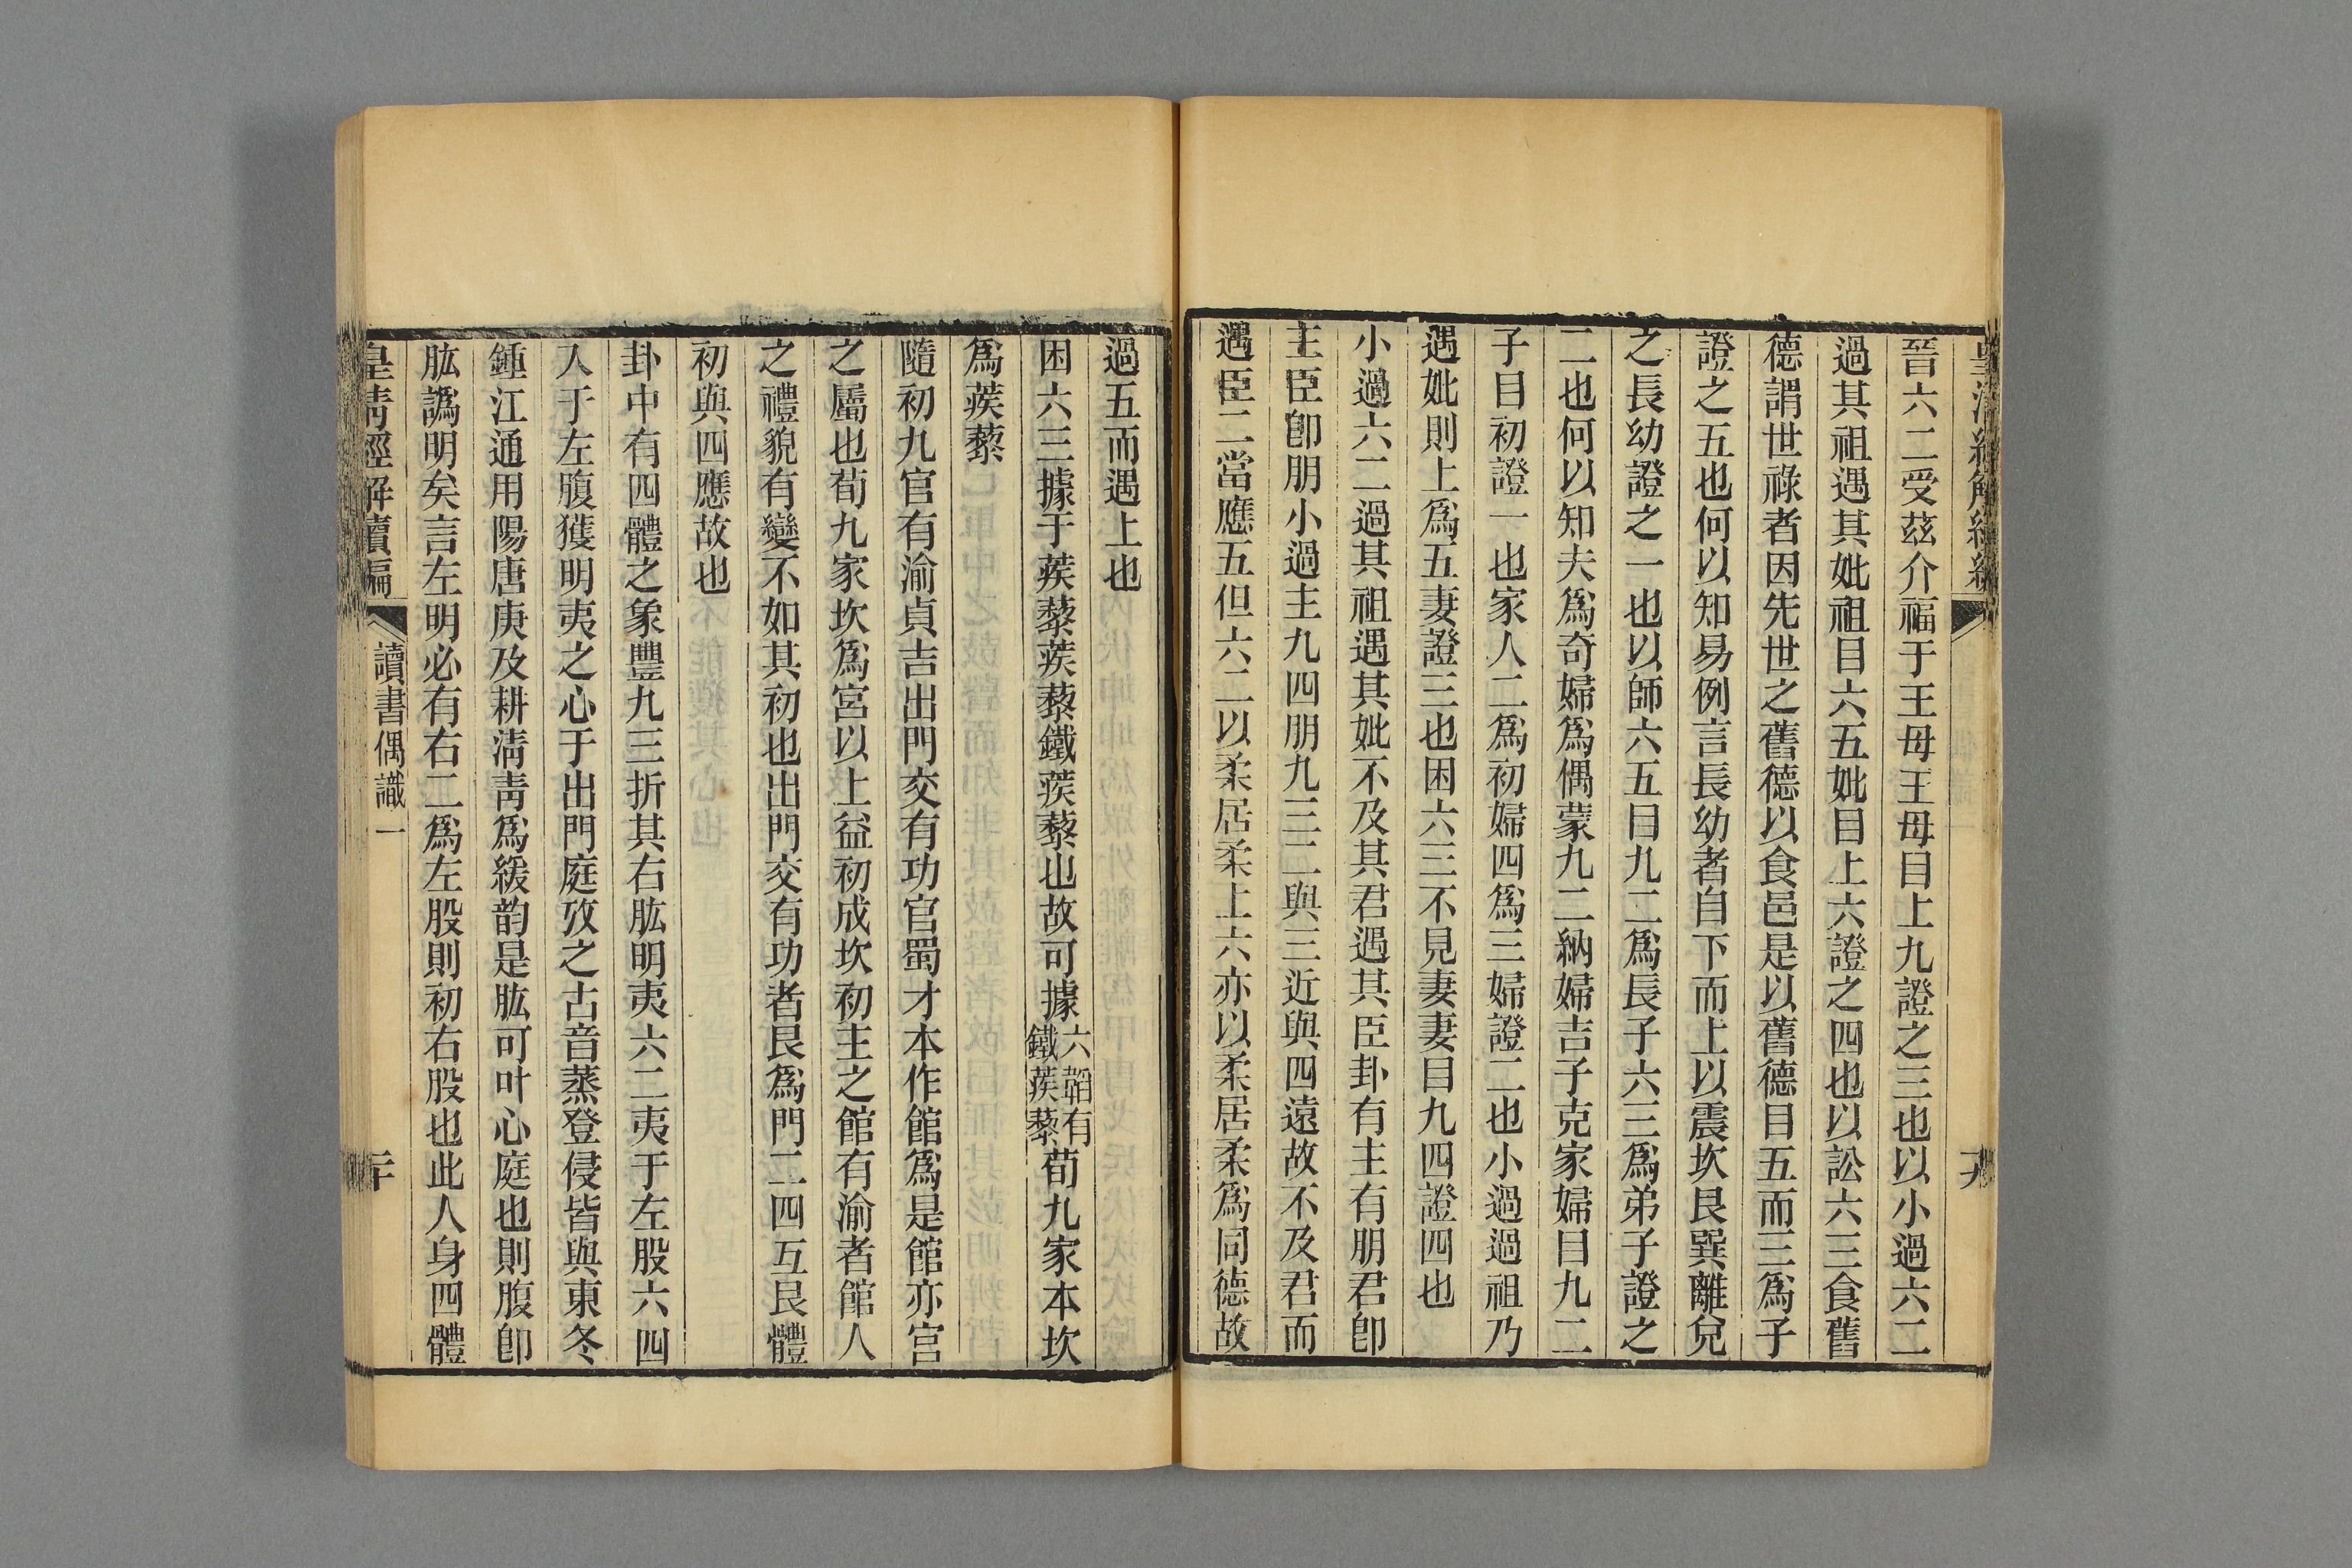 晉六二受茲介福于王母王母目上九證之三也以小過六二
過其祖遇其妣祖目六五妣目上六證之四也以訟六三食舊
德謂世祿者因先世之舊德以食邑是以舊德目五而三爲子
證之五也何以知易例言長幼者自下而上以震坎艮巽離兌
之長幼證之一也以師六五目九二爲長子六三爲弟子證之
二也何以知夫爲奇婦爲偶蒙九二納婦吉子克家婦目九二
子目初證一也家人二爲初婦四爲三婦證二也小過過祖乃
遇妣則上爲五妻證三也困六三不見妻妻目九四證四也
小過六二過其祖遇其妣不及其君遇其臣卦有主有朋君卽
主臣卽朋小過主九四朋九三二與三近與四遠故不及君而
遇臣二當應五但六二以柔居柔上六亦以柔居柔爲同德故
過五而遇上也
困六三據于蒺藜蒺藜鐵蒺藜也故可據六韜有鐵蒺藜荀九家本坎
爲蒺藜
隨初九官有渝貞吉出門交有功官蜀才本作館爲是館亦宮
之屬也荀九家坎爲宮以上益初成坎初主之館有渝者館人
之禮貌有變不如其初也出門交有功者艮爲門二四互艮體
初與四應故也
卦中有四體之象豐九三折其右肱明夷六二夷于左股六四
入于左腹獲明夷之心于出門庭攷之古音蒸登侵皆與東冬
鍾江通用陽唐庚及耕淸靑爲緩韵是肱可叶心庭也則腹卽
肱譌明矣言左明必有右二爲左股則初右股也此人身四體
皇淸經解續編
讀書偶識一